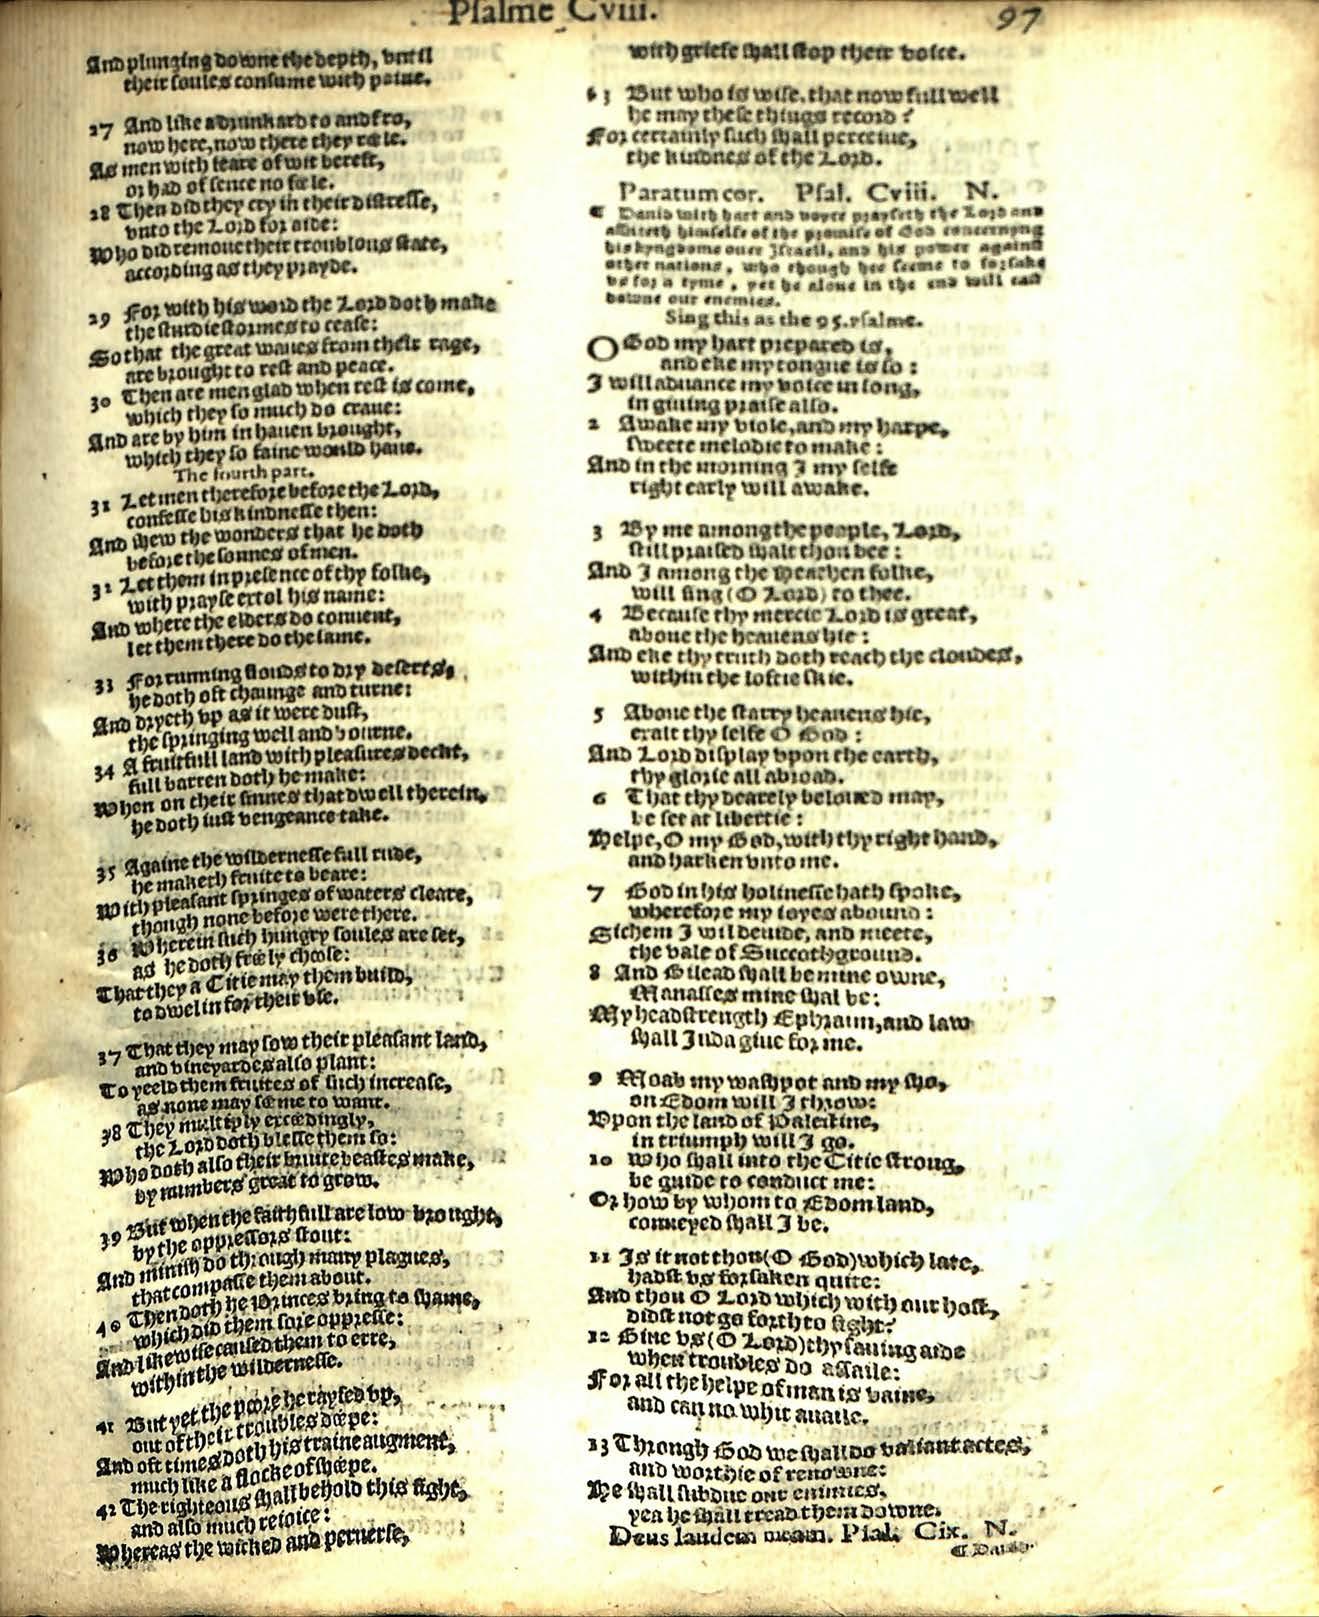 Psalme Cviii.
97
And plunging downe the depth, vntil
their soules consume with paine.
27 And like a drunkard to and fro,
now here, now there they reele.
As men with feare of wit bereft,
or had of sence no feele.
28 Then did they cry in their distresse,
vnto the Lord for aide:
Who did remoue their troublous state,
according as they prayde.
29 For with his word the Lord doth make
the sturdie stormes to cease:
So that the great waues from their rage,
are brought to rest and peace.
30 Then are men glad when rest is come,
which they so much do craue:
And are by him in hauen brought,
which they so faine would haue.
The fourth part.
31 Let men therefore before the Lord,
confesse his kindnesse then:
And shew the wonders that he doth
before the sonnes of men.
32 Let them in presence of thy folke,
with prayse extol his name:
And where the elders do conuent,
let them there do the same.
33 For running flouds to dry deserts,
he doth oft chaunge and turne:
And dryeth vp as it were dust,
the springing well and bourne.
34 A fruitfull land with pleasures deckt,
full barren doth he make:
When on their sinnes that dwell therein,
he doth iust vengeance take.
35 Againe the wildernesse full rude,
he maketh fruite to beare:
With pleasant springes of waters cleare,
though none before were there.
36 Wherein such hungry soules are set,
as he doth freely choose:
That they a Citie may them build,
to dwel in for their vse.
37 That they may sow their pleasant land,
and vineyardes also plant:
To yeeld them fruites of such increase,
as none may seeme to want.
38 They multiply exceedingly,
the Lord doth blesse them so:
Who doth also their bruite beastes make,
by numbers great to grow.
39 But when the faithfull are low brought,
by the oppressors stout:
And minish do through many plagues,
that compasse them about.
40 Then doth he Princes bring to shame,
which did them sore oppresse:
And likewise caused them to erre,
within the wildernesse.
41 But yet the poore he raysed vp,
out of their troubles deepe:
And oft times doth his traine augment,
much like a flocke of sheepe.
42 The righteous shall behold this sight,
and also much reioice:
Whereas the wicked and peruerse,
with griefe shall stop their voice.
43 But who is wise, that now full well
he may these things record?
For certainly such shall perceiue,
the kindnes of the Lord.
Paratum cor. Psal. Cviii. N.
¶ Dauid with hart and voyce prayseth the Lord and
assureth himselfe of the promise of God concernyng
his kyngdome ouer Israell, and his power against
other nations, who though hee seeme to forsake
vs for a tyme, yet he alone in the end will cast
downe our enemies.
Sing this as the 95. psalme.
O God my hart prepared is,
and eke my tongue is so:
I will aduance my voice in song,
in giuing praise also.
2 Awake my viole, and my harpe,
sweete melodie to make:
And in the morning I my selfe
right early will awake.
3 By me among the people, Lord,
still praised shalt thou bee:
And I among the Heathen folke,
will sing (O Lord) to thee.
4 Because thy mercie Lord is great,
aboue the heauens hie:
And eke thy truth doth reach the cloudes,
within the loftie skie.
5 Aboue the starry heauens hie,
exalt thy selfe O God:
And Lord display vpon the earth,
thy glorie all abroad.
6 That thy dearely beloued may,
be set at libertie:
Helpe, O my God, with thy right hand,
and harken vnto me.
7 God in his holinesse hath spoke,
wherefore my ioyes abound:
Sichem I wil deuide, and meete,
the vale of Succoth ground.
8 And Gilead shall be mine owne,
Manasses mine shal be:
My head strength Ephraim, and law
shall Juda giue for me.
9 Moab my washpot and my sho,
on Edom will I throw:
Vpon the land of Palestine,
in triumph will I go.
10 Who shall into the Citie strong,
be guide to conduct me:
Or how by whom to Edom land,
conueyed shall I be.
11 Is it not thou (O God) which late,
hadst vs forsaken quite:
And thou O Lord which with our host,
didst not go forth to fight?
12 Giue vs (O Lord) thy sauing aide
when troubles do assaile:
For all the helpe of man is vaine,
and can no whit auaile.
13 Through God we shall do valiant actes,
and worthie of renowne:
He shall subdue our enimies,
yea he shall tread them downe.
Deus laudem meam. Psal. Cix. N.
¶ Dauid